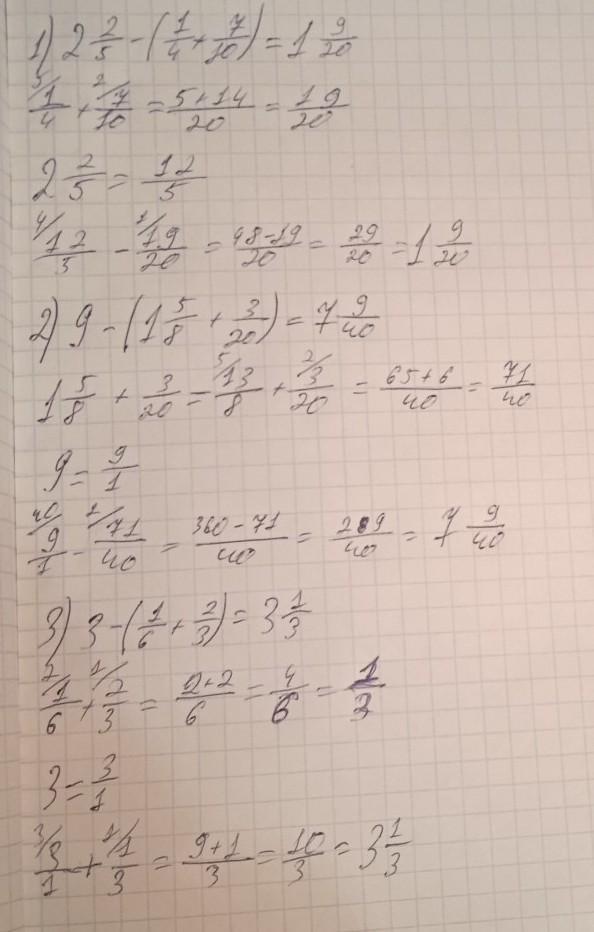 1) 2 2/5 - (1/4 + 7/10) = 1 9/20
5/ 1/4 + 2/ 7/10 = (5+14)/20 = 19/20
2 2/5 = 12/5
4/ 12/5 - 1/ 19/20 = (48-19)/20 = 29/20 = 1 9/20
2) 9 - (1 5/8 + 3/20) = 7 9/40
1 5/8 + 3/20 = 5/ 13/8 + 2/ 3/20 = (65+6)/40 = 71/40
9 = 9/1
40/ 9/1 - 1/ 71/40 = (360-71)/40 = 289/40 = 7 9/40
3) 3 - (1/6 + 2/3) = 3 1/3
2/ 1/6 + 1/ 2/3 = (2+2)/6 = 4/6 = 1/3
3 = 3/1
3/ 3/1 + 1/ 1/3 = (9+1)/3 = 10/3 = 3 1/3